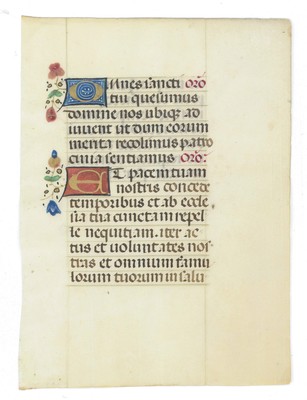 Omnes sancti Oro
tui quesumus
domine nos ubique ad
iuvent ut dum eorum
merita recolimus patro
cinia sentiamus Oro:
Et pacem tuam
nostris concede
temporibus et ab eccle
sia tua cunctam repel
le nequitiam. iter ac
tus et voluntates nos
tras et omnium famu
lorum tuorum in salu